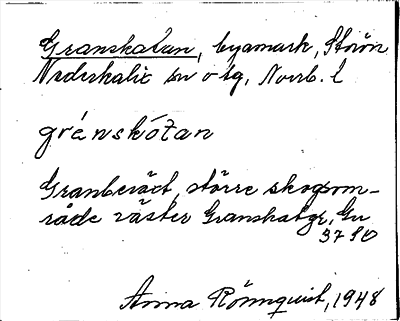 Granskatan, byamark, Storön
Nederkalix sn o tg, Norrb. l
grénskótan
Granbeväxt, större skogsom-
råde väster Granskatgr, Gu
37 SO
Anna Rönnquist, 1948